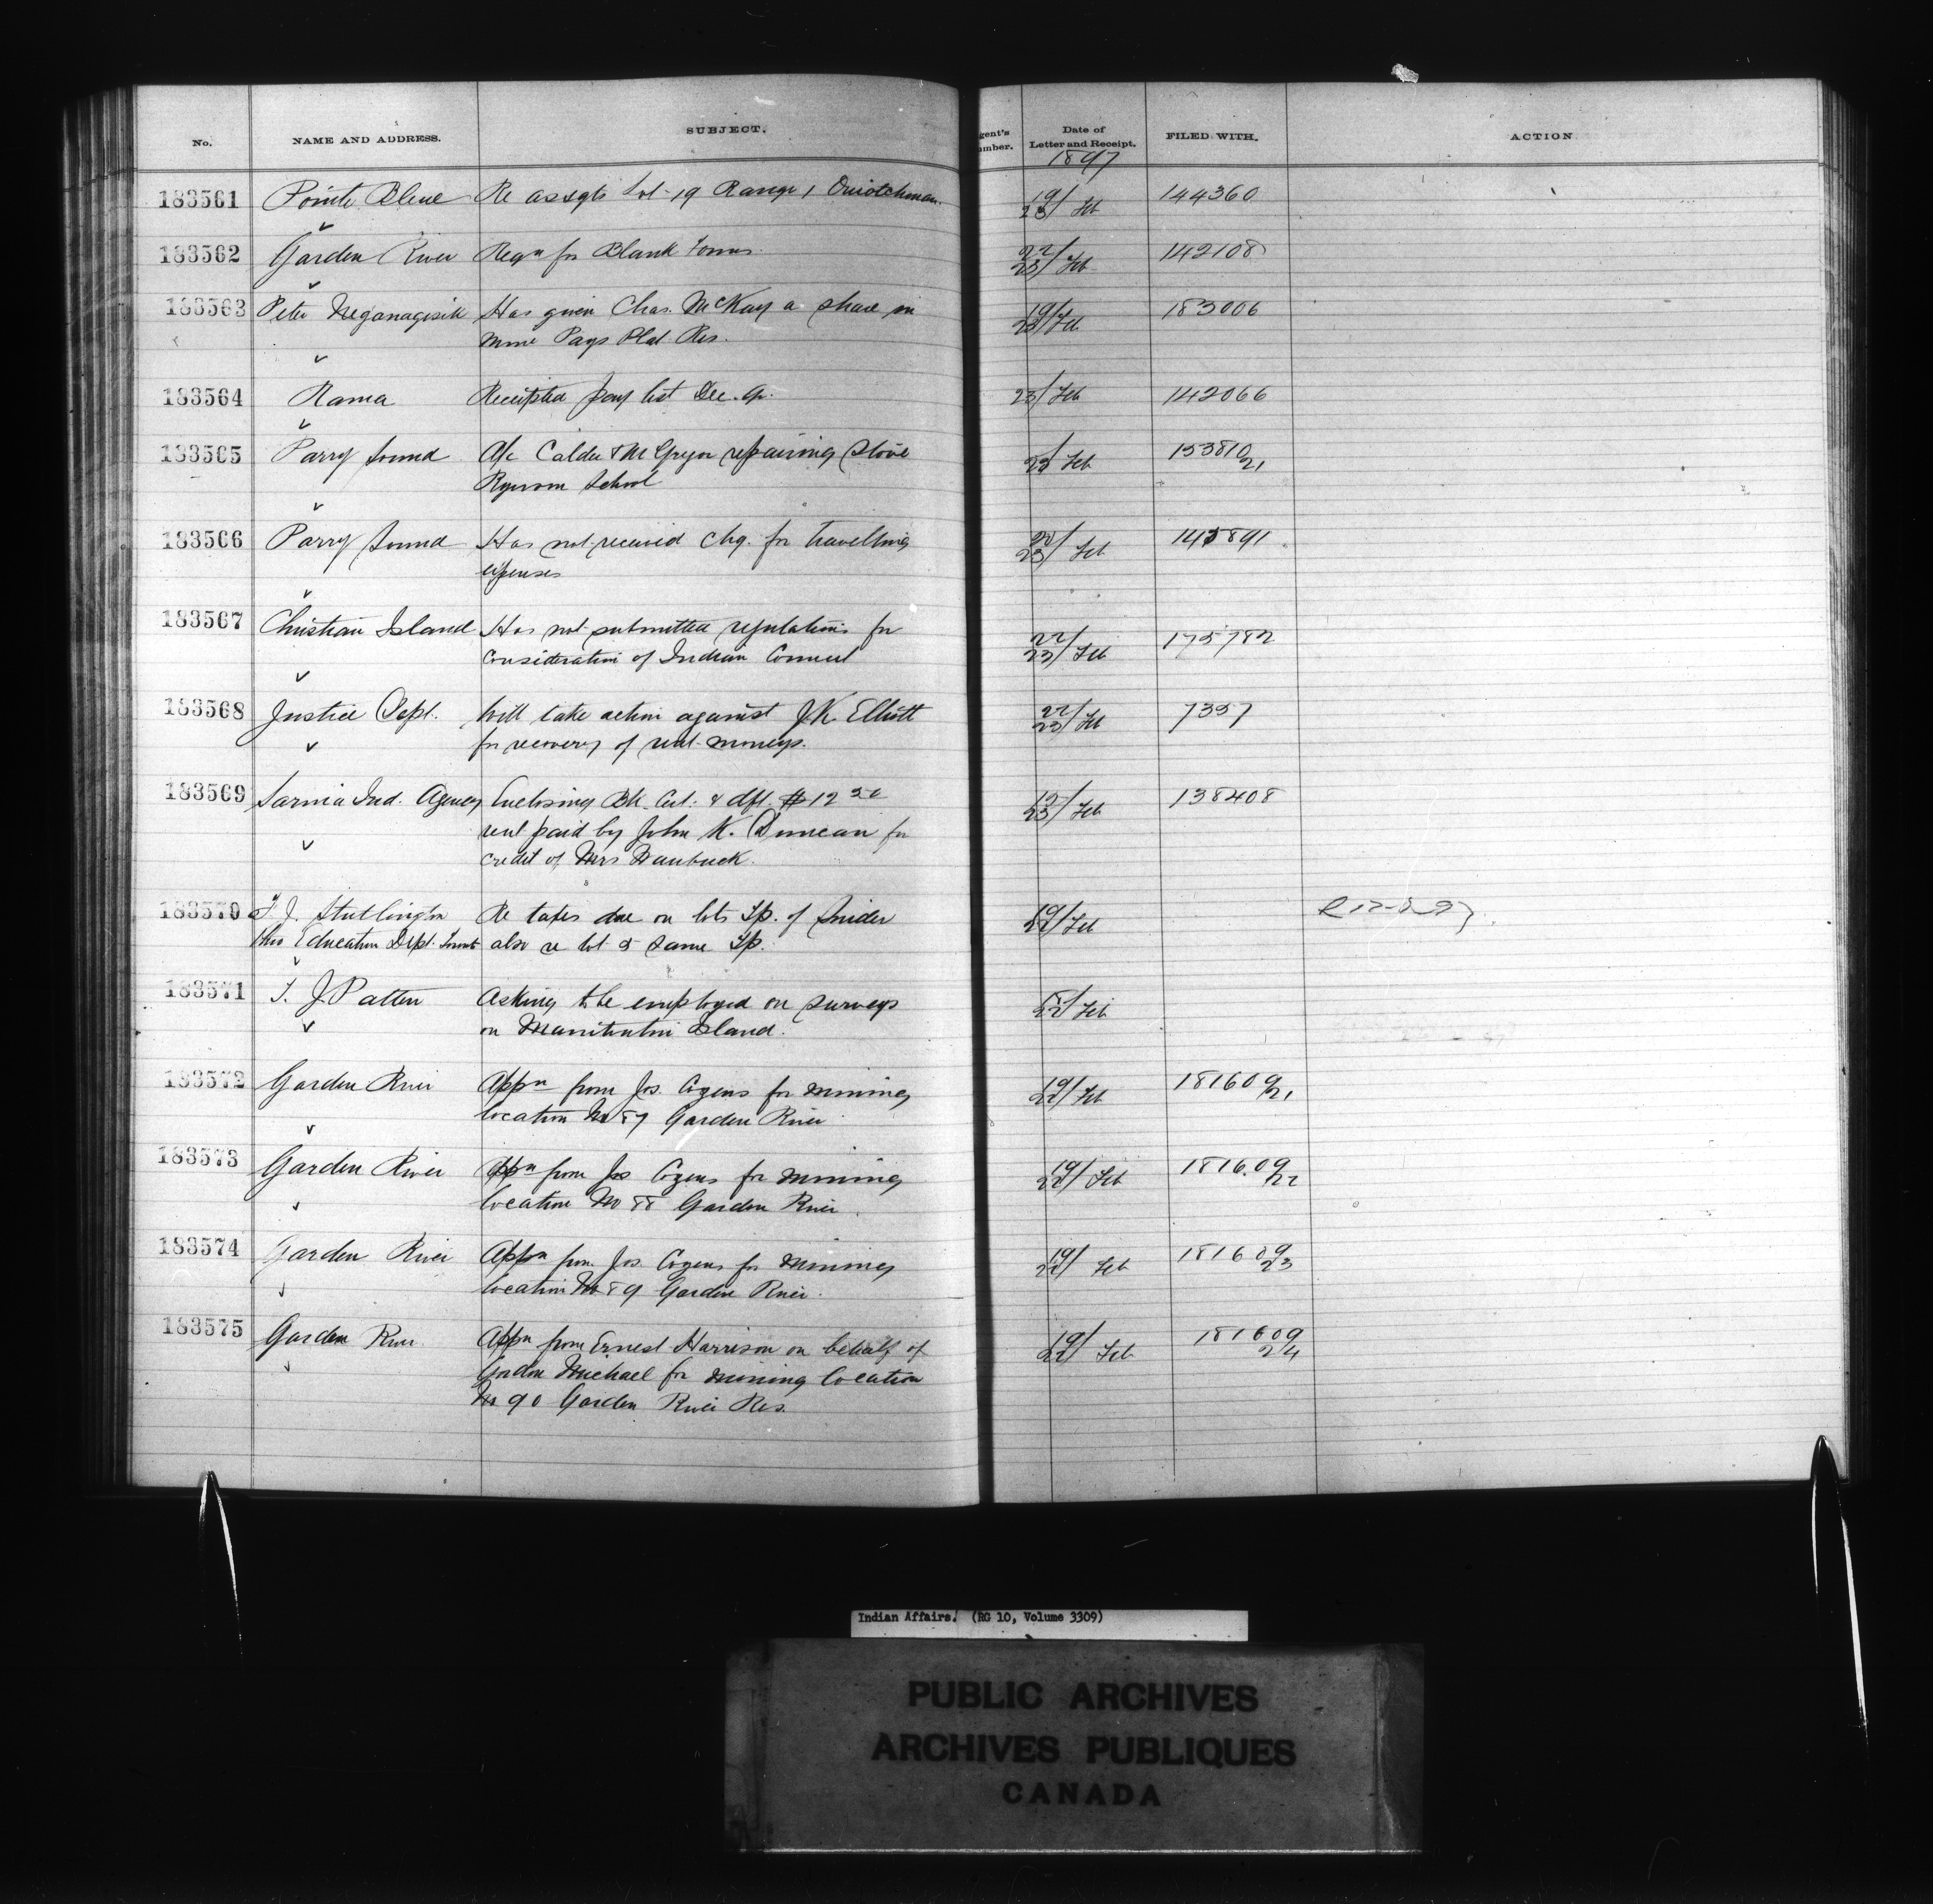 No. NAME AND ADDRESS. SUBJECT. gent's umber. Date of Letter and Receipt. FILED WITH. ACTION
1897
183561 Pointe Bleue Re assgts Lot 19 Range 1 Ouiatchouan 19/23 Feb 144360
183562 Garden River Reqn for Blank Forms 22/23 Feb 142108
183563 Peter Neganagisik Has given Chas. McKay a share in 19/23 Feb 183006
mine Pays Plat Res.
183564 Rama Receipted pay list Dec. qr. 23/ Feb 142066
183565 Parry Sound A/c Calder & McGregor repairing Stove 23 Feb 153810/21
Ryerson School
183566 Parry Sound Has not received chq. for travelling 20/23 Feb 145891
expenses
183567 Christian Island Has not submitted regulations for 22/23 Feb 175782
consideration of Indian Council
183568 Justice Dept. Will take action against J.K. Elliott 22/23 Feb 7357
for recovery of rent moneys.
183569 Sarnia Ind. Agency Enclosing Bk. Cert. & dft. $12
rent paid by John K. Duncan for 23 Feb 138408
credit of Mrs
183570 J. Stutlington Re taxes due on lots Tp. of Snider 19/22 Feb
thro Education Dept. also re lot 5 same Tp.
183571 T. J. Patten Asking to be employed on surveys 22 Feb
on Manitoulin Island.
183572 Garden River Appn from Jos. Cozens for mining 19/22 Feb 181609/21
location No 87 Garden River
183573 Garden River Appn from Jos Cozens for mining 19/22 Feb 181609/22
location No 88 Garden River
183574 Garden River Appn from Jos. Cozens for mining 19/22 Feb 181609/23
location No 89 Garden River.
183575 Garden River Appn from Ernest Harrison on behalf of 19/22 Feb 181609/24
Gordon Michael for mining location
No 90 Garden River Res.
Indian Affairs. (RG 10, Volume 3309)
PUBLIC ARCHIVES
ARCHIVES PUBLIQUES
CANADA